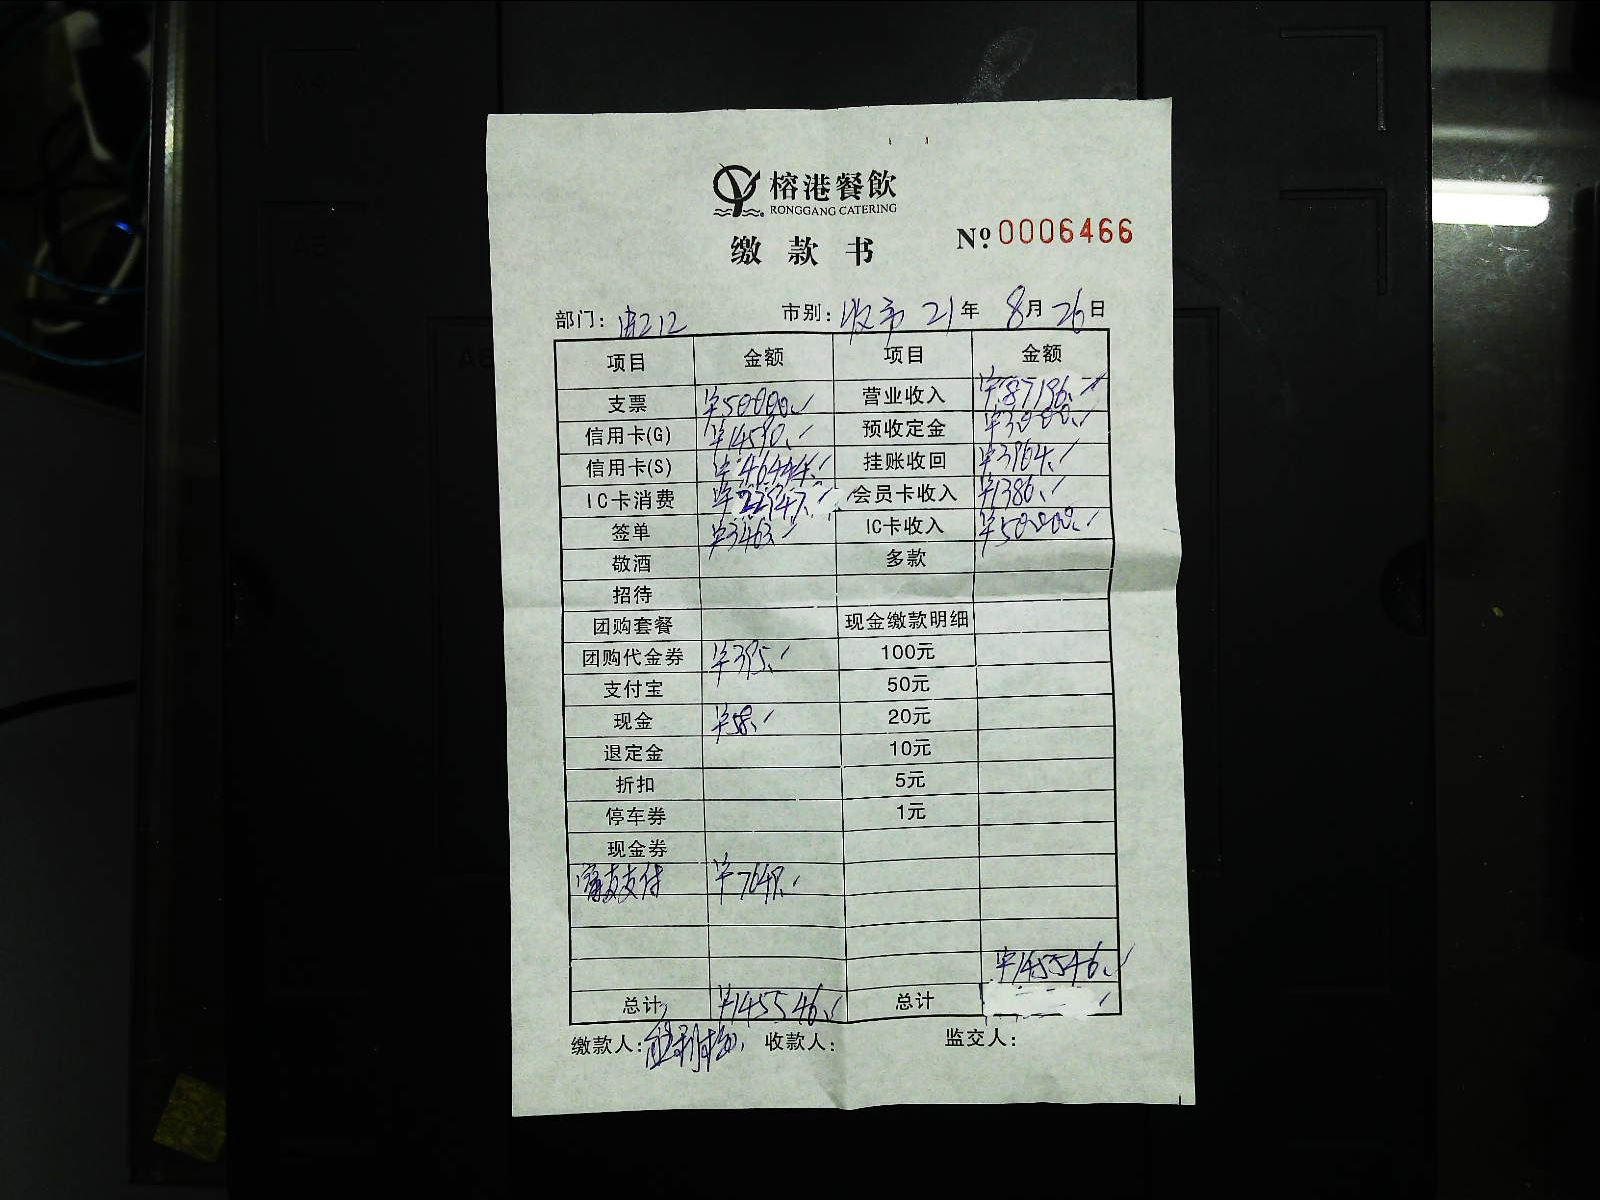 榕港餐飲
RONGGANG CATERING
缴款书 Nº 0006466
部门: 市别: 收市 21年 8月 26日
项目 金额 项目 金额
支票 ¥50000. 营业收入 ¥87196.
信用卡(G) ¥14590. 预收定金 ¥3000.
信用卡(S) ¥46444. 挂账收回 ¥3964.
IC卡消费 ¥22947. 会员卡收入 ¥1386.
签单 ¥3463. IC卡收入 ¥50000.
敬酒 多款
招待
团购套餐 现金缴款明细
团购代金券 ¥395. 100元
支付宝 50元
现金 ¥58. 20元
退定金 10元
折扣 5元
停车券 1元
现金券
富友支付 ¥7649.
¥145546.
总计 ¥145546. 总计
缴款人: 收款人: 监交人: